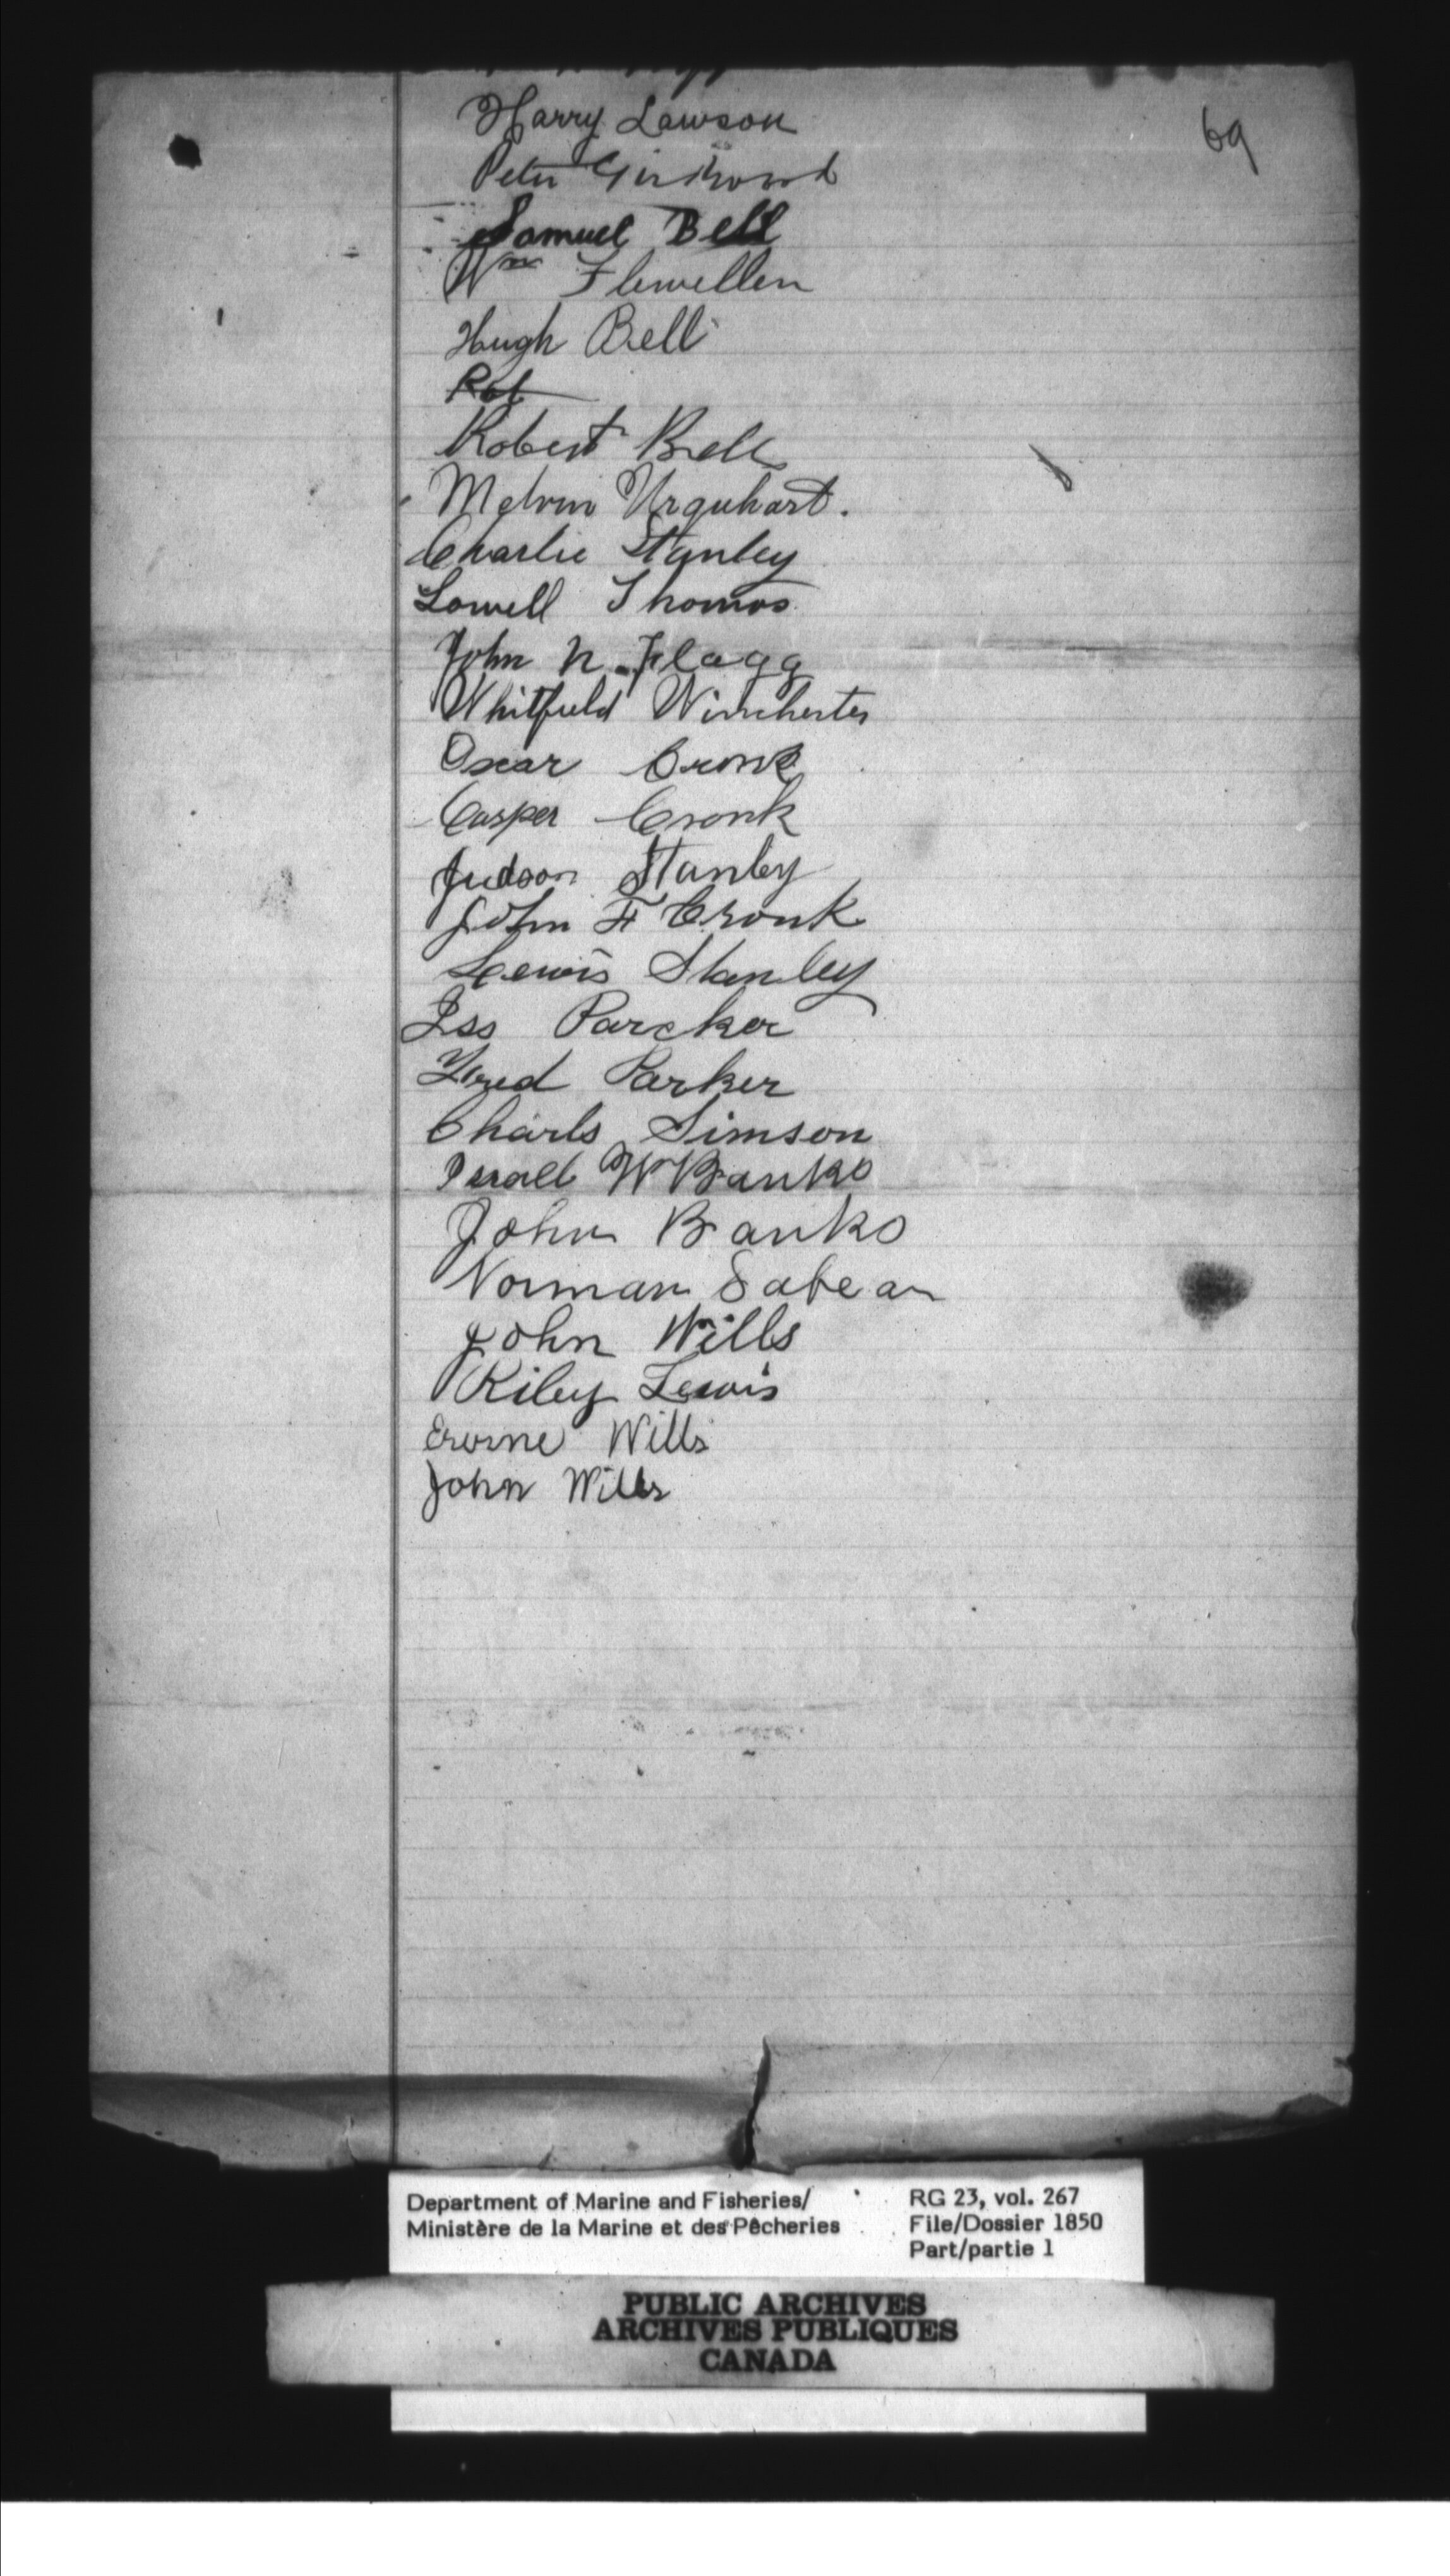 69
Harry Lawson
Peter Girdwood
Samuel Bell
Wm Flewellen
Hugh Bell
Rob
Robert Bell
Melvin Urquhart.
Charlie Stanley
Lowell Thomas
John N. Flagg
Whitfield Winchester
Oscar Cronk
Casper Cronk
Judson Stanley
John F Cronk
Lewis Stanley
Iss Parcker
Fred Parker
Charls Simson
Israll W Banks
John Banks
Norman Sabean
John Wills
Riley Lewis
Ervine Wills
John Wills
Department of Marine and Fisheries/ RG 23, vol. 267
Ministère de la Marine et des Pêcheries File/Dossier 1850
Part/partie 1
PUBLIC ARCHIVES
ARCHIVES PUBLIQUES
CANADA